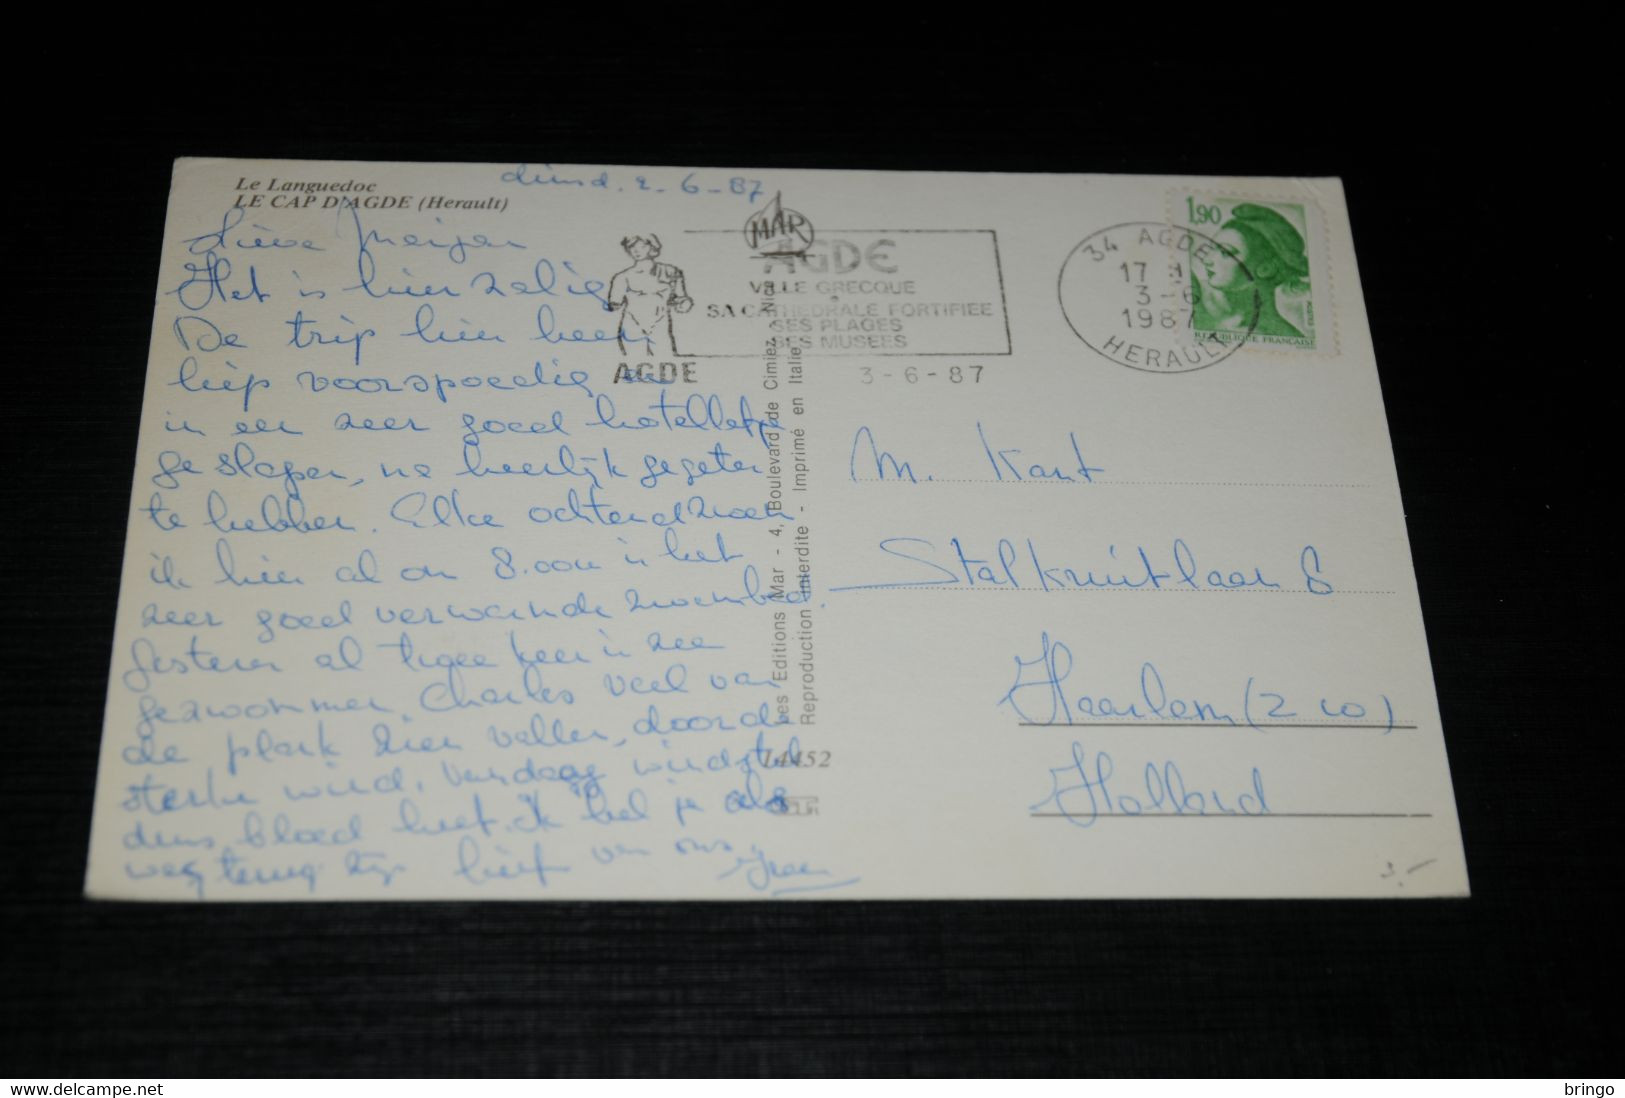 Le Languedoc
LE CAP D'AGDE (Herault)
dinsd. 2-6-87
Lieve Marjan
Het is hier zalig
De trip hier heen
liep voorspoedig en
in een zeer goed hotelletje
geslapen, na heerlijk gegeten
te hebben. Elke ochtend zwem
ik hier al om 8.00u in het
zeer goed verwarmde zwembad.
gisteren al twee keer in zee
gezwommen. Charles veel van
de plank zien vallen, door de
sterke wind, vandaag windstil
dus bloed heet. Ik bel je als
weg terug zijn liefs van ons
MAR
AGDE
VILLE GRECQUE
SA CATHEDRALE FORTIFIEE
SES PLAGES
SES MUSEES
AGDE
3-6-87
34 AGDE
17 H
3-6
1987
HERAULT
1,90
REPUBLIQUE FRANCAISE
Les Editions Mar - 4, Boulevard de Cimiez, Nice
Reproduction interdite - Imprimé en Italie
14452
M. Kant
Stalkruitlaan 6
Haarlem (ZW)
Holland
3.-
www.delcampe.net
bringo